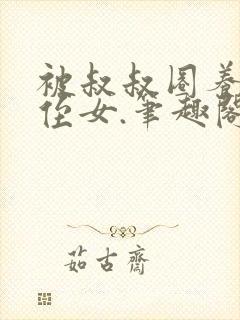 被叔叔圈养
侄女.笔趣阁
茹古斋